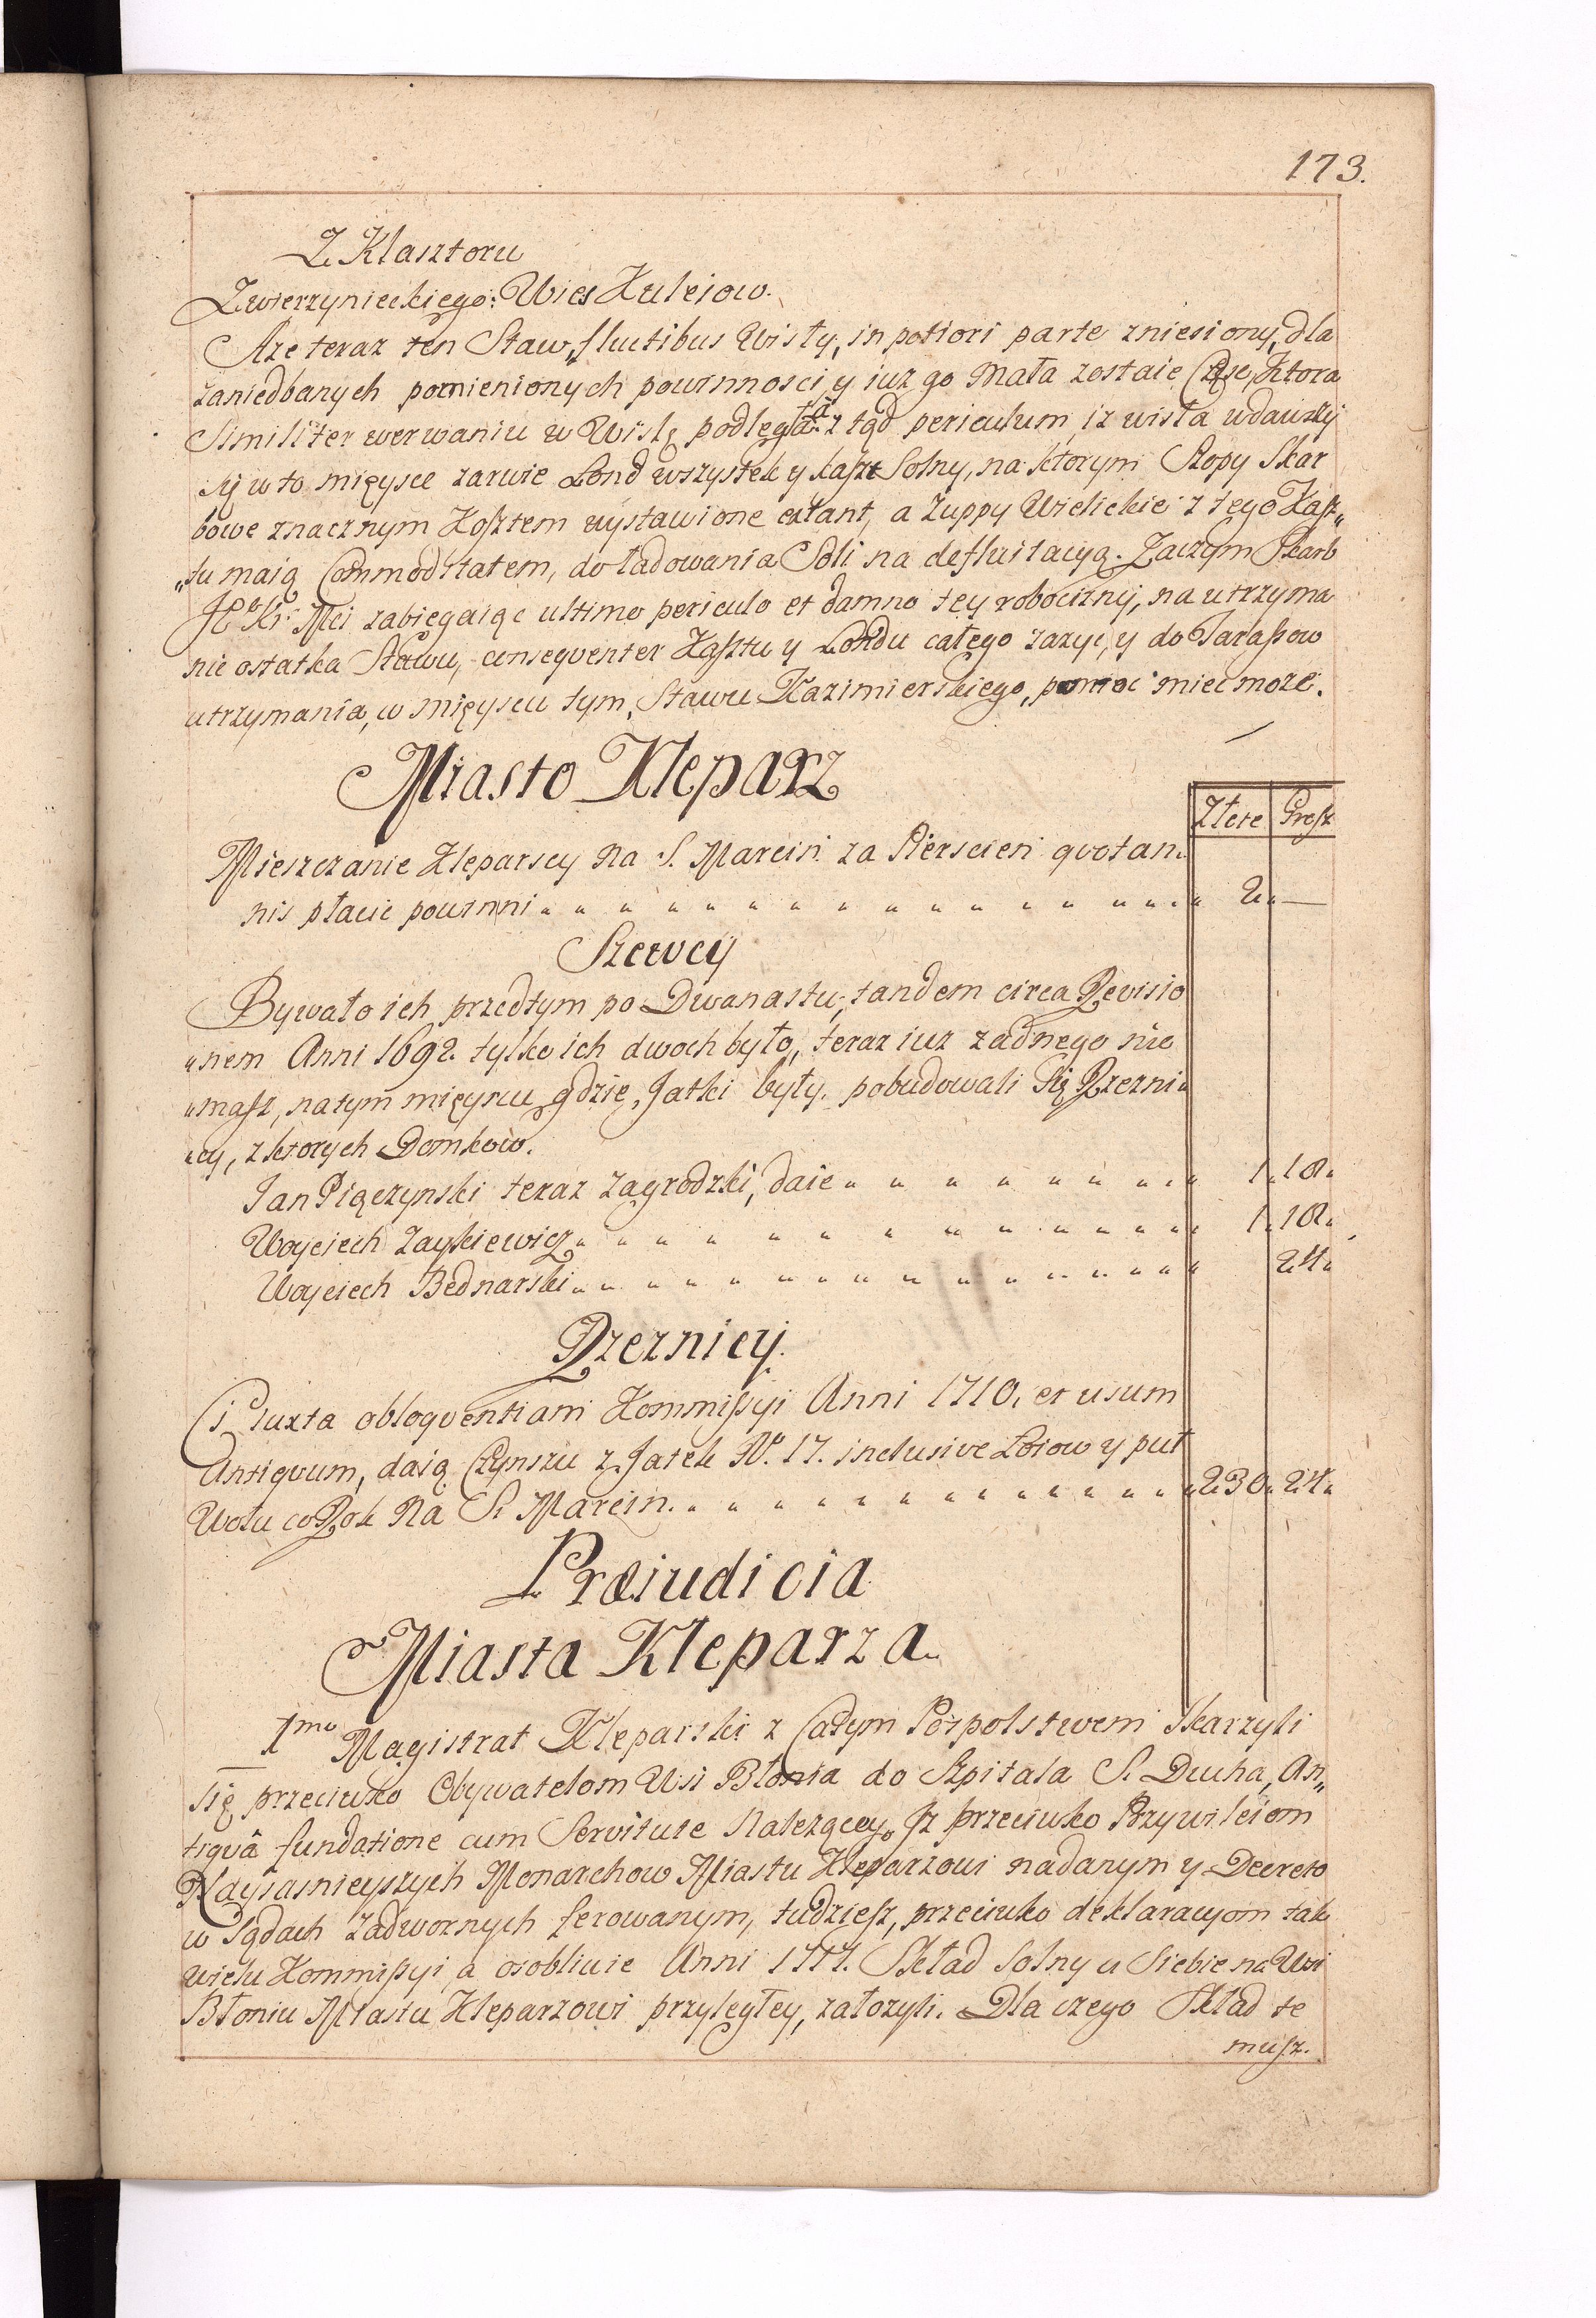 173.
Z Klasztoru
Zwierzynieckiego: Wies Kuleiow.
Aze teraz ten Staw, fluctibus Wisły, in potiori parte zniesiony, dla
zaniedbanych pomienionych powinnosci, y iuz go Mała zostaie Częsc, Ktora
Similiter werwaniu w Wisłę podległa. z tąd periculum, iz wisła wdawszy
się w to mięysce zarwie Lond wszystek y kaszt Solny, na ktorym Szopy Skar
bowe znacznym Kosztem wystawione extant, a Zuppy Wielickie z tego Kasz„
„tu maią Commoditatem, do ładowania Soli na defluitacyą. Zaczym Skarb
Kr. Mci zabiegaiąc ultimo periculo et damno tey robocizny, na utrzyma
nie ostatka Stawu, consequenter Kasztu y Londu całego zazyc, y do Tarasow
utrzymania, w mięyscu tym, Stawu Kazimierskiego, pomoc miec moze.
Miasto Kleparz
Złote Grosz
Mieszczanie Kleparscy Na S. Marcin za Pierscien quotan„
nis płacic powinni „ 2 „ —
Szewcy
Bywało ich przedtym po Dwanastu, tandem circa Revisio
„nem Anni 1692. tylko ich dwoch było, teraz iuz zadnego nie
„masz, natym mięyscu gdzie, Jatki były. pobudowali Się Rzezni„
„cy, z ktorych Domkow.
Jan Piączynski teraz Zagrodzki, daie „ 1 „ 18 „
Woyciech Zaykiewicz „ 1 „ 18 „
Woyciech Bednarski „ 24 „
Rzeznicy.
Ci Iuxta obloquentiam Kommissyi Anni 1710. et usum
Antiquum, daią Czynszu z Jatek No. 17. inclusive Łoiow y puł
Wołu co Rok Na S. Marcin. „ 230 „ 24 „
Præiudicia
Miasta Kleparza.
1mo Magistrat Kleparski z Całym Pospolstwem Skarzyli
się przeciwko Obywatelom Wsi Błonia do Szpitala S. Ducha, An„
tiquâ fundatione cum Servitute Nalezącey. Iz przeciwko Przywileiom
Nayiasnieyszych Monarchow Miastu Kleparzowi nadanym y Decreto
w Sądach Zadwornych ferowanym, tudziesz, przeciwko deklaracyom tak
wielu Kommissyi, a osobliwie Anni 1717. Skład Solny u Siebie na Wsi
Błoniu Miastu Kleparzowi przyległey, załozyli. Dla czego Skład te
musz.